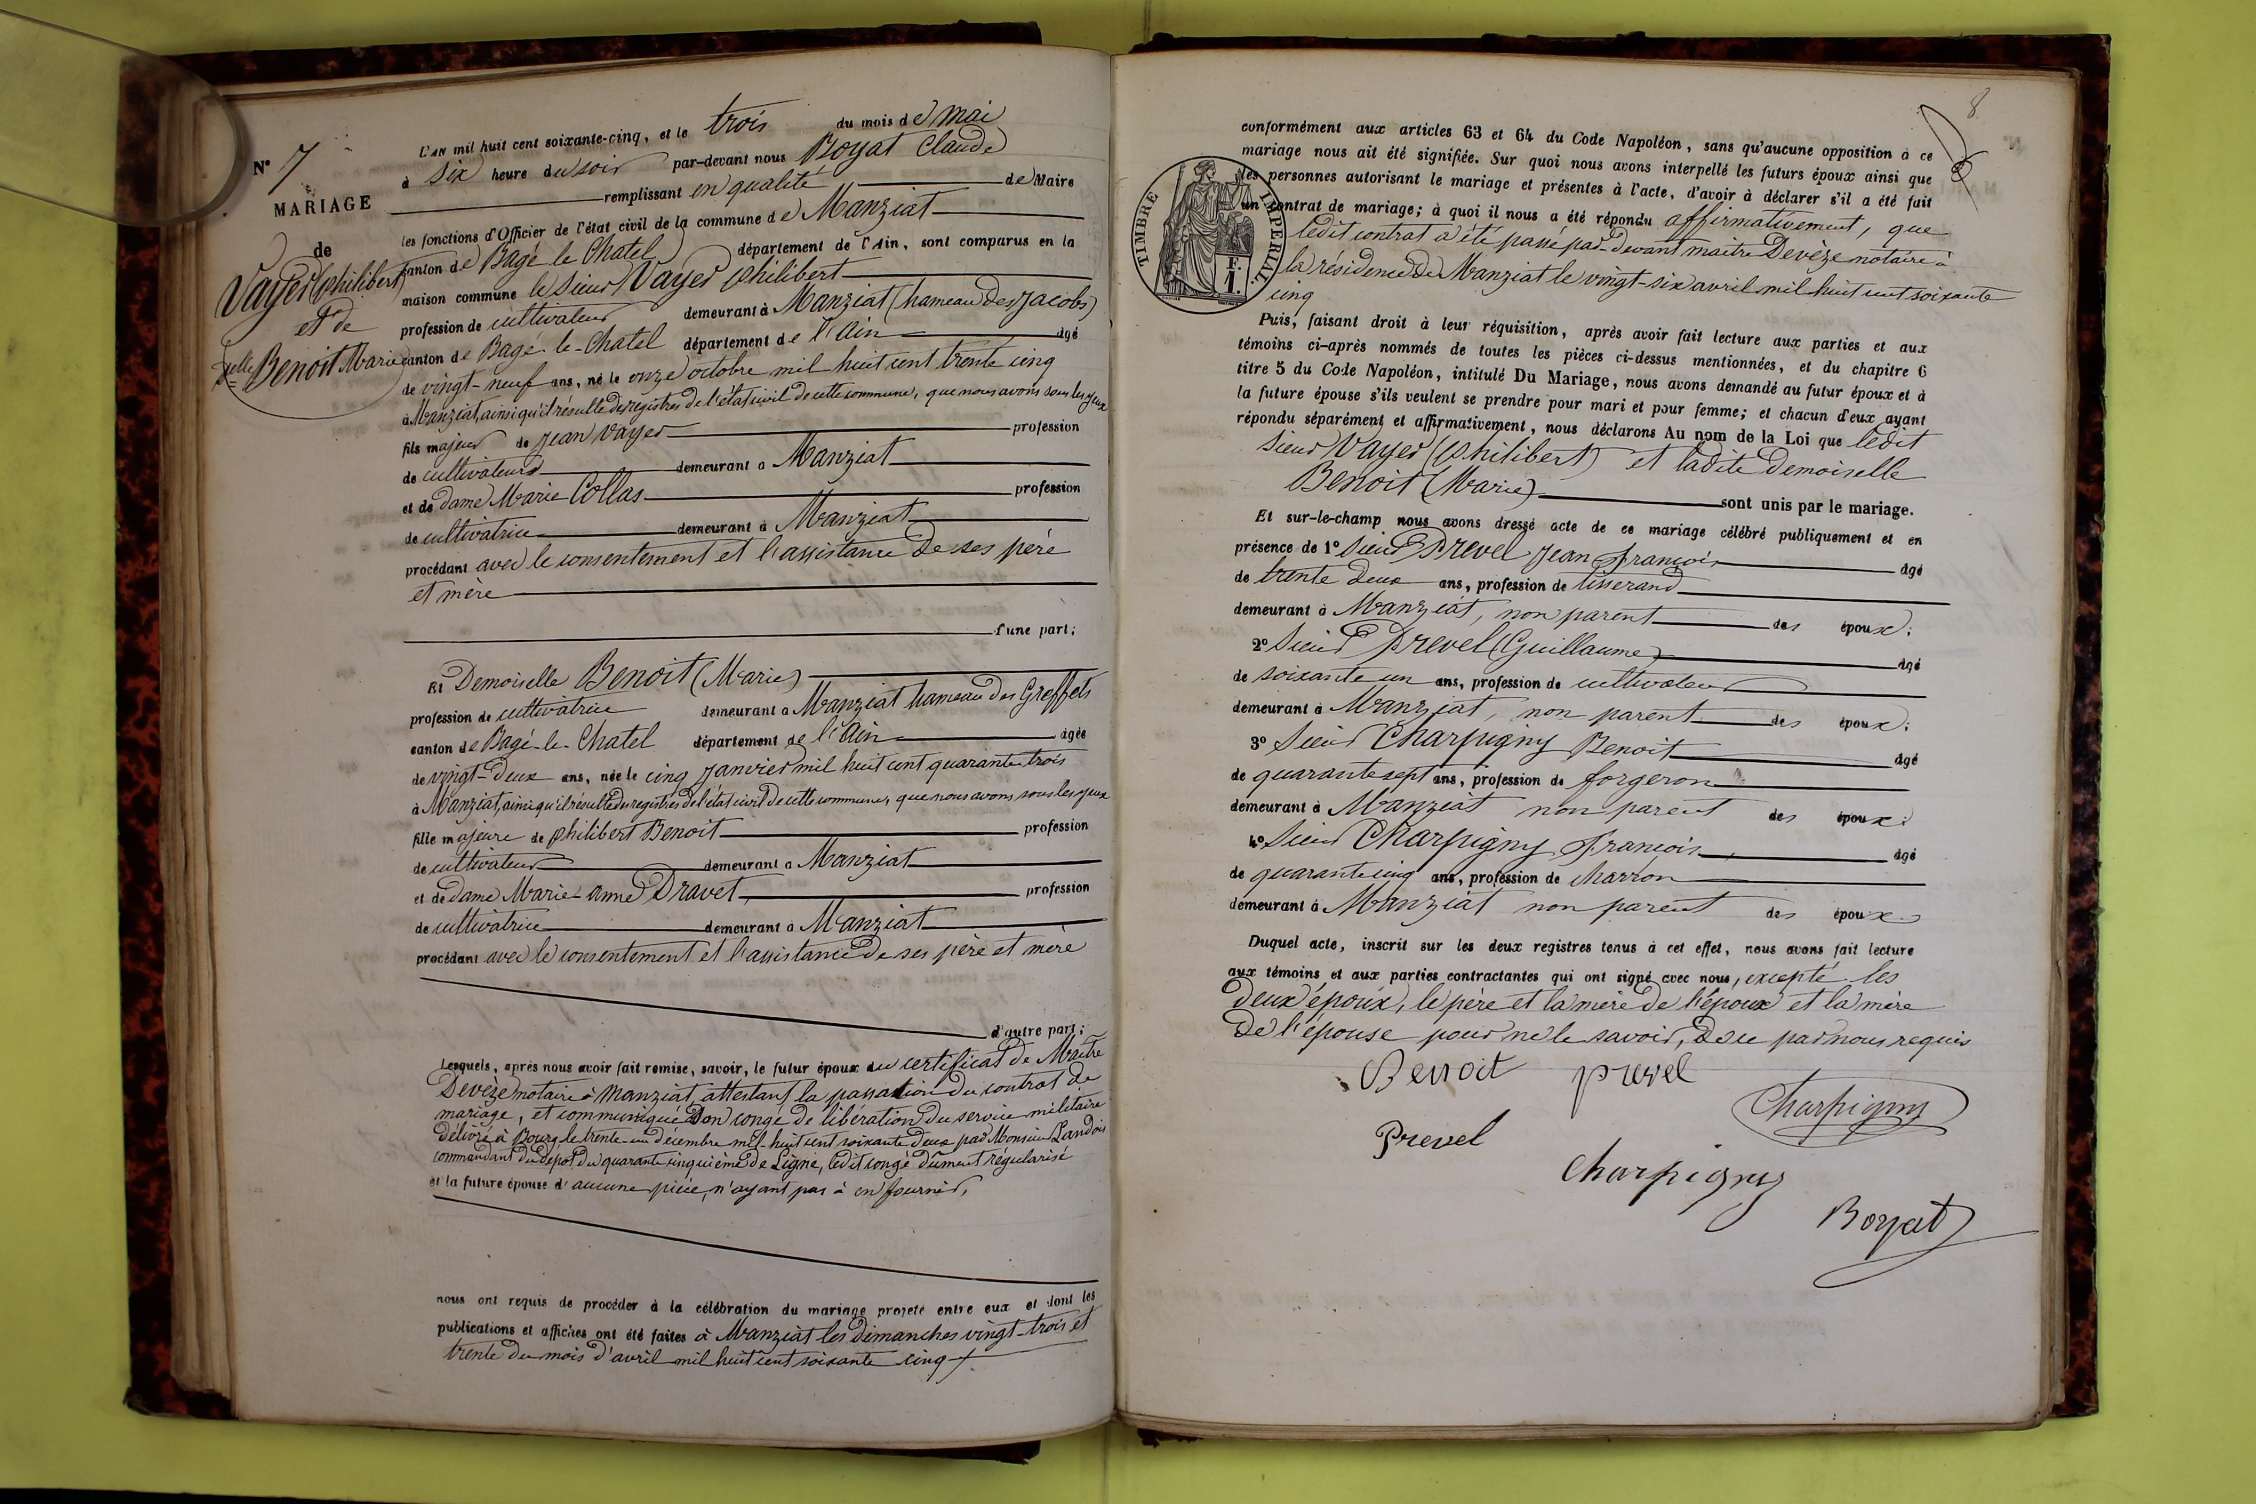 N° 7
MARIAGE
de
Vayer (Philibert)
et de
Delle Benoit Marie
L'AN mil huit cent soixante-cinq, et le trois du mois de mai
à six heure du soir par-devant nous Boyat Claude
remplissant en qualité de Maire
les fonctions d'Officier de l'état civil de la commune de Manziat
canton de Bagé le Chatel département de l'Ain, sont comparus en la
maison commune le sieur Vayer Philibert
profession de cultivateur demeurant à Manziat (hameau des Jacobs)
canton de Bagé-le-Chatel département de l'Ain âgé
de vingt-neuf ans, né le onze octobre mil huit cent trente cinq
à Manziat, ainsi qu'il résulte des registres de l'état civil de cette commune, que nous avons sous les yeux
fils majeur de Jean Vayer profession
de cultivateur demeurant à Manziat
et de dame Marie Collas profession
de cultivatrice demeurant à Manziat
procédant avec le consentement et l'assistance de ses père
et mère
d'une part;
Et Demoiselle Benoit (Marie)
profession de cultivatrice demeurant à Manziat hameau des Greffets
canton de Bagé-le-Chatel département de l'Ain âgée
de vingt-deux ans, née le cinq janvier mil huit cent quarante trois
à Manziat, ainsi qu'il résulte du registres de l'état civil de cette commune, que nous avons sous les yeux
fille majeure de Philibert Benoit profession
de cultivateur demeurant à Manziat
et de dame Marie-anne Dravet, profession
de cultivatrice demeurant à Manziat
procédant avec le consentement et l'assistance de ses père et mère
d'autre part;
Lesquels, après nous avoir fait remise, savoir, le futur époux du certificat de Maitre
Devèze notaire à Manziat, attestant la passation du contrat de
mariage, et communiqué son congé de libération du service militaire
délivré à Bourg le trente-un décembre mil-huit cent soixante deux par Monsieur Landois
commandant du dépot du quarante cinquième de Ligne, ledit congé dûment régularisé
et la future épouse d'aucune pièce, n'ayant pas à en fournir,
nous ont requis de procéder à la célébration du mariage projeté entre eux et dont les
publications et affiches ont été faites à Manziat les dimanches vingt-trois et
trente du mois d'avril mil huit cent soixante cinq
8
TIMBRE IMPERIAL
1 F.
conformément aux articles 63 et 64 du Code Napoléon, sans qu'aucune opposition à ce
mariage nous ait été signifiée. Sur quoi nous avons interpellé les futurs époux ainsi que
les personnes autorisant le mariage et présentes à l'acte, d'avoir à déclarer s'il a été fait
un contrat de mariage; à quoi il nous a été répondu affirmativement, que
ledit contrat a été passé par-devant maitre Devèze notaire à
la résidence de Manziat le vingt-six avril mil huit cent soixante
cinq
Puis, faisant droit à leur réquisition, après avoir fait lecture aux parties et aux
témoins ci-après nommés de toutes les pièces ci-dessus mentionnées, et du chapitre 6
titre 5 du Code Napoléon, intitulé Du Mariage, nous avons demandé au futur époux et à
la future épouse s'ils veulent se prendre pour mari et pour femme; et chacun d'eux ayant
répondu séparément et affirmativement, nous déclarons Au nom de la Loi que ledit
sieur Vayer (Philibert) et ladite demoiselle
Benoit (Marie) sont unis par le mariage.
Et sur-le-champ nous avons dressé acte de ce mariage célébré publiquement et en
présence de 1° Sieur Prevel Jean François âgé
de trente deux ans, profession de tisserand
demeurant à Manziat, non parent des époux;
2° Sieur Prevel (Guillaume) âgé
de soixante un ans, profession de cultivateur
demeurant à Manziat, non parent des époux;
3° Sieur Charpigny Benoit âgé
de quarante sept ans, profession de forgeron
demeurant à Manziat non parent des époux;
4° Sieur Charpigny François, âgé
de quarante cinq ans, profession de charron
demeurant à Manziat non parent des époux
Duquel acte, inscrit sur les deux registres tenus à cet effet, nous avons fait lecture
aux témoins et aux parties contractantes qui ont signé avec nous, excepté les
deux époux, le père et la mère de l'époux et la mère
de l'épouse pour ne le savoir, de ce par nous requis
Benoit Prevel
Charpigny
Prevel
Charpigny
Boyat